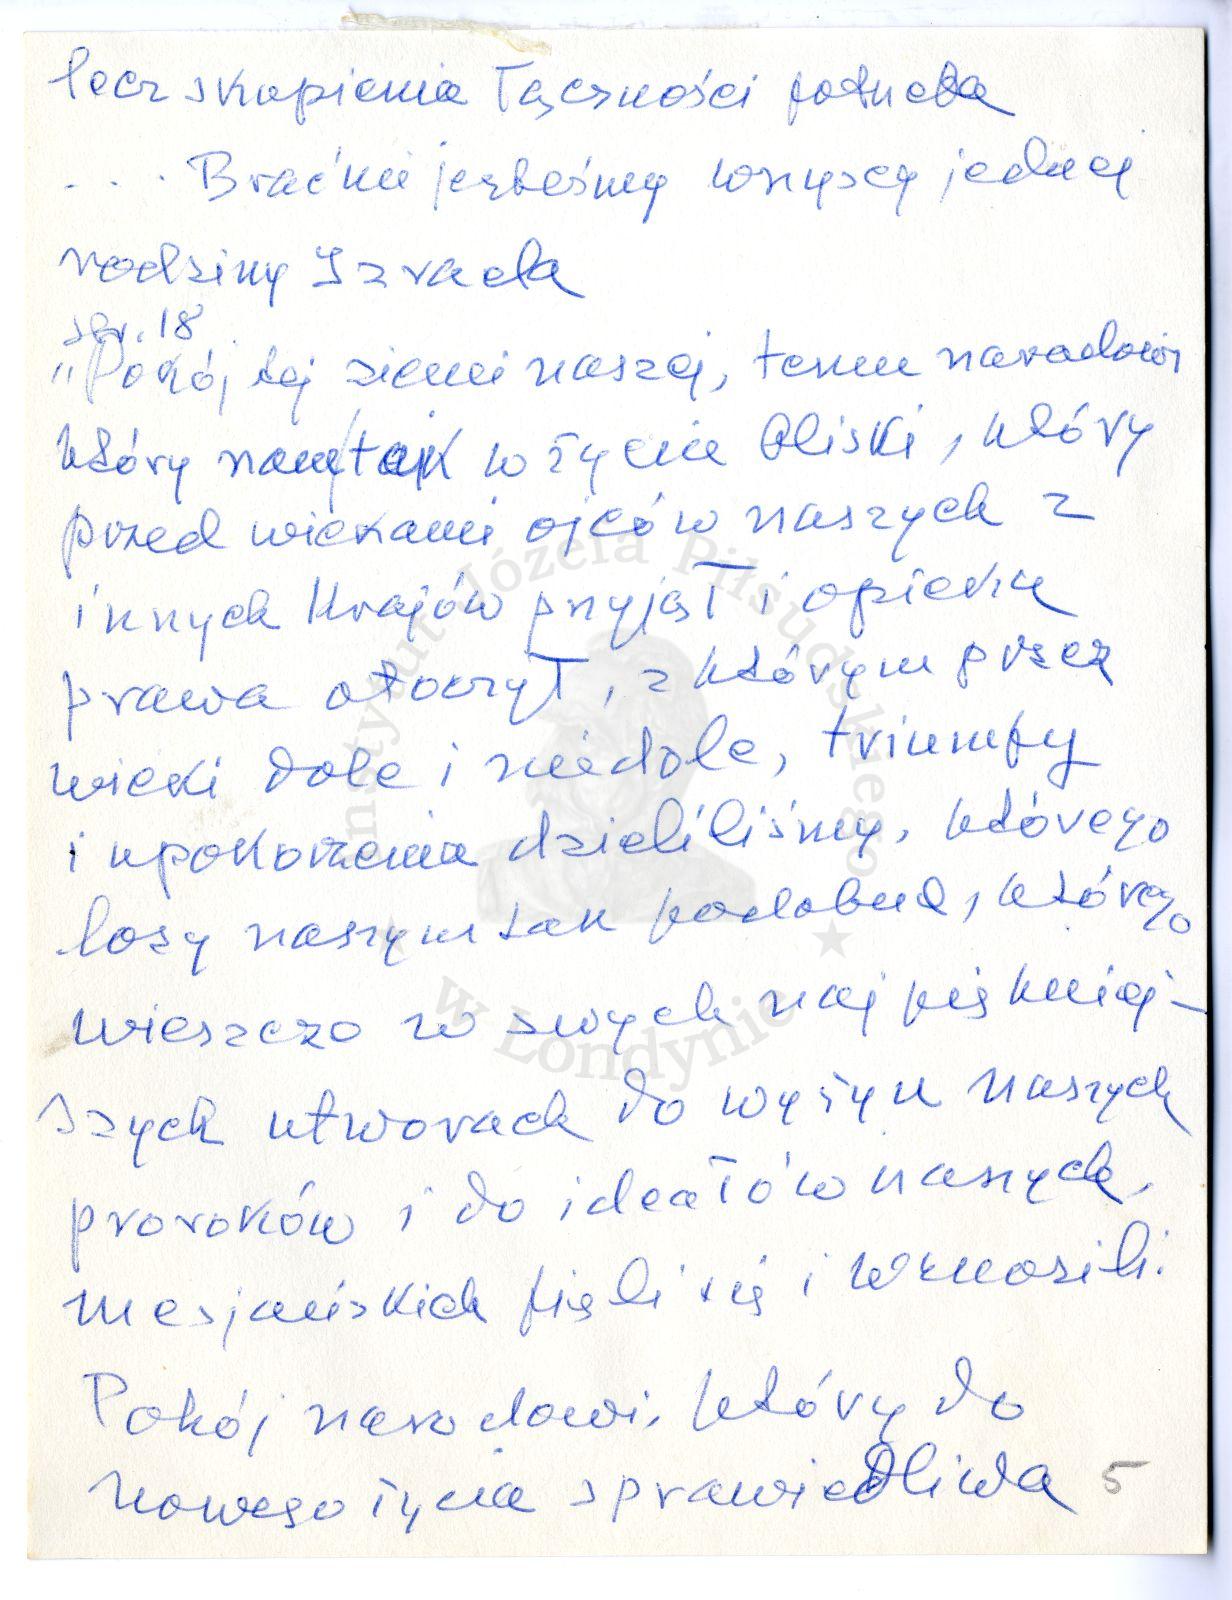 lecz skupienia łączności potrzeba
... Braćmi jesteśmy wszyscy jednej
rodziny Izraela
str. 18
"Pokój tej ziemi naszej, temu narodowi
który nam tak w życiu bliski, który
przed wiekami ojców naszych z
innych krajów przyjął i opieką
prawa otoczył, z którym przez
wieki dole i niedole, triumfy
i upokorzenia dzieliliśmy, którego
losy naszym tak podobne, którego
wieszcze w swych najpiękniej-
szych utworach do wyżyn naszych
proroków i do ideałów naszych
mesjańskich pięli się i wznosili.
Pokój narodowi, który do
nowego życia sprawiedliwa
5
Instytut Józefa Piłsudskiego
w Londynie